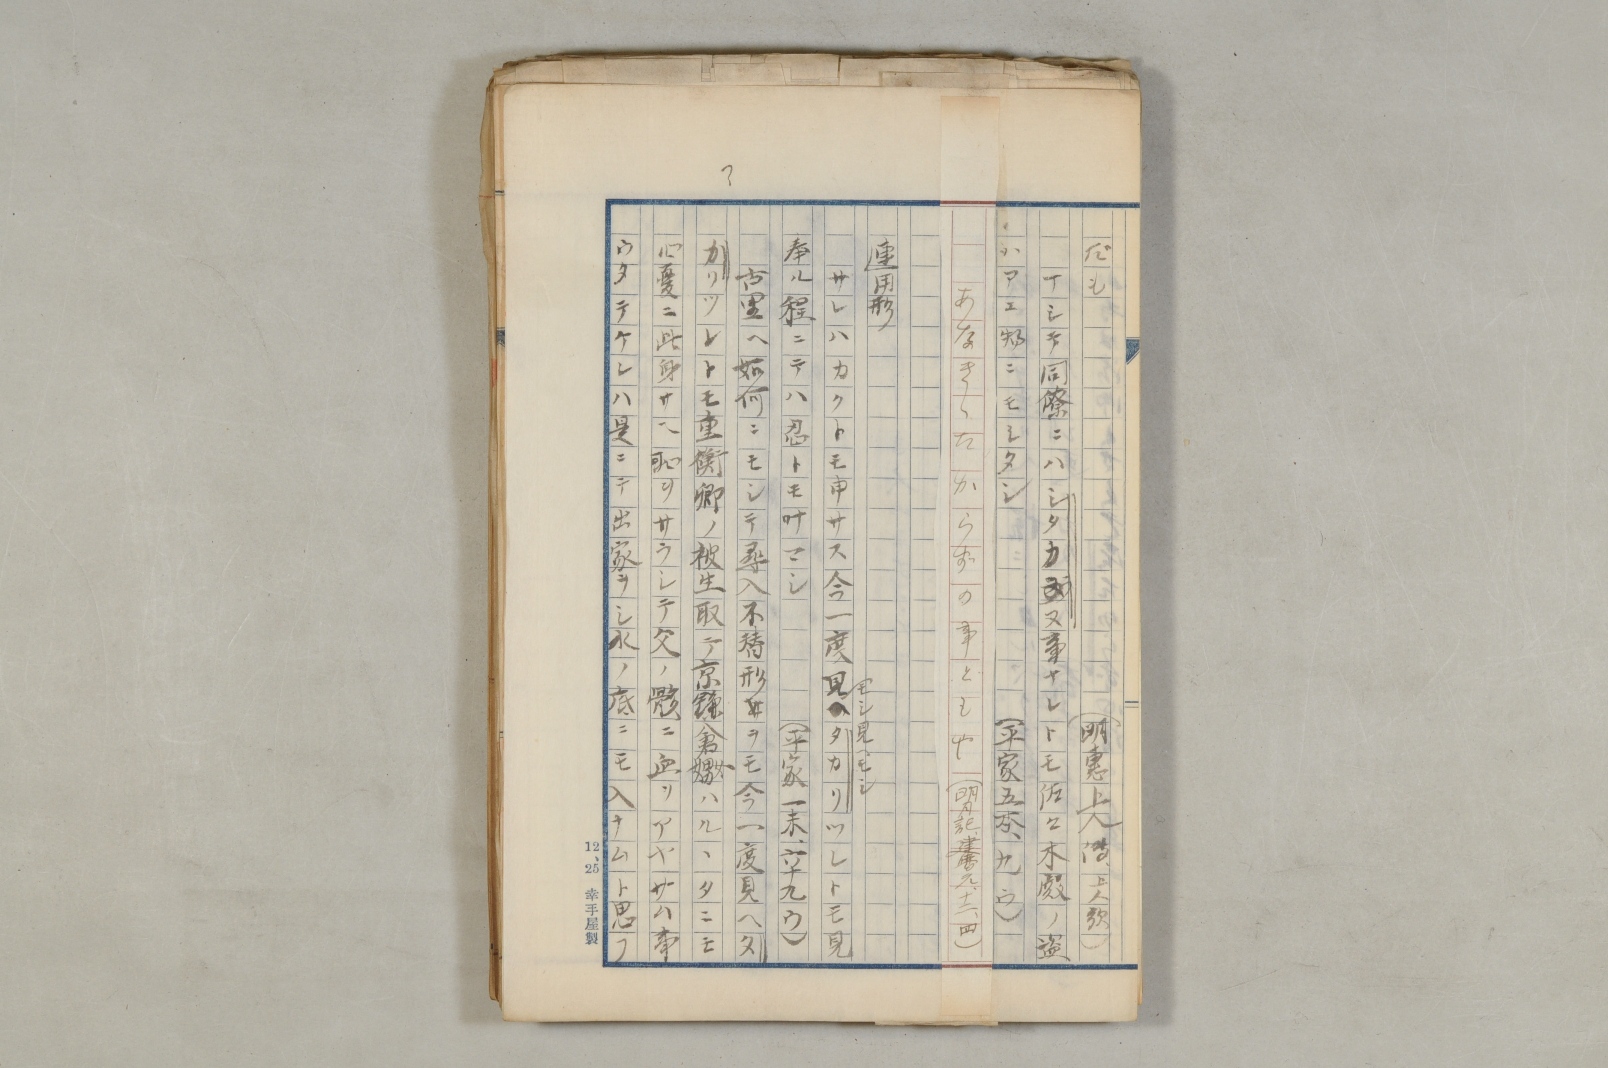 だも
(明惠上人傳、上人歌)
ナシテ同僚ニハシタカヌ事ナレトモ佐々木殿ノ盗
ハアエ物ニモシタシ
(平家五本、九ウ)
あなきゝたからずの事どもや(明月記、建暦元、十二、四)
連用形
サレハカクトモ申サス今一度見ヘタカリツレトモ見
モシ見ヘモシ
奉ル程ニテハ忍トモ叶マシ
(平家一末、六十九ウ)
古里ヘ如何ニモシテ尋入不替形ヲモ今一度見ヘタ
カリツレトモ重衡卿ノ被生取テ京鎌倉ハルヽタニモ
心憂ニ此身サヘ恥ヲサラシテ父ノ骸ニ血ヲアヤサム事
ウタテケレハ是ニテ出家ヲシ水ノ底ニモ入ナムト思フ
12、25 幸手屋製